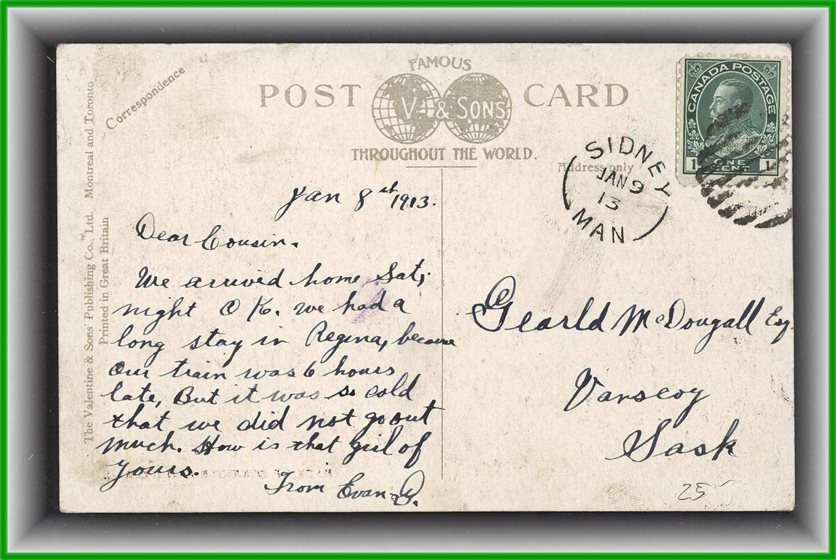 Correspondence
FAMOUS
POST CARD
V. & SONS
THROUGHOUT THE WORLD.
Address only
CANADA POSTAGE
1 ONE CENT 1
SIDNEY
JAN 9
13
MAN
The Valentine & Sons' Publishing Co., Ltd. Montreal and Toronto.
Printed in Great Britain
Jan 8st 1913.
Dear Cousin.
We arrived home Sat,
night O K. we had a
long stay in Regina, because
our train was 6 hours
late, But it was so cold
that we did not go out
much. How is that girl of
yours.
From Evan
Gearld McDougall Esq
Vanscoy
Sask
25